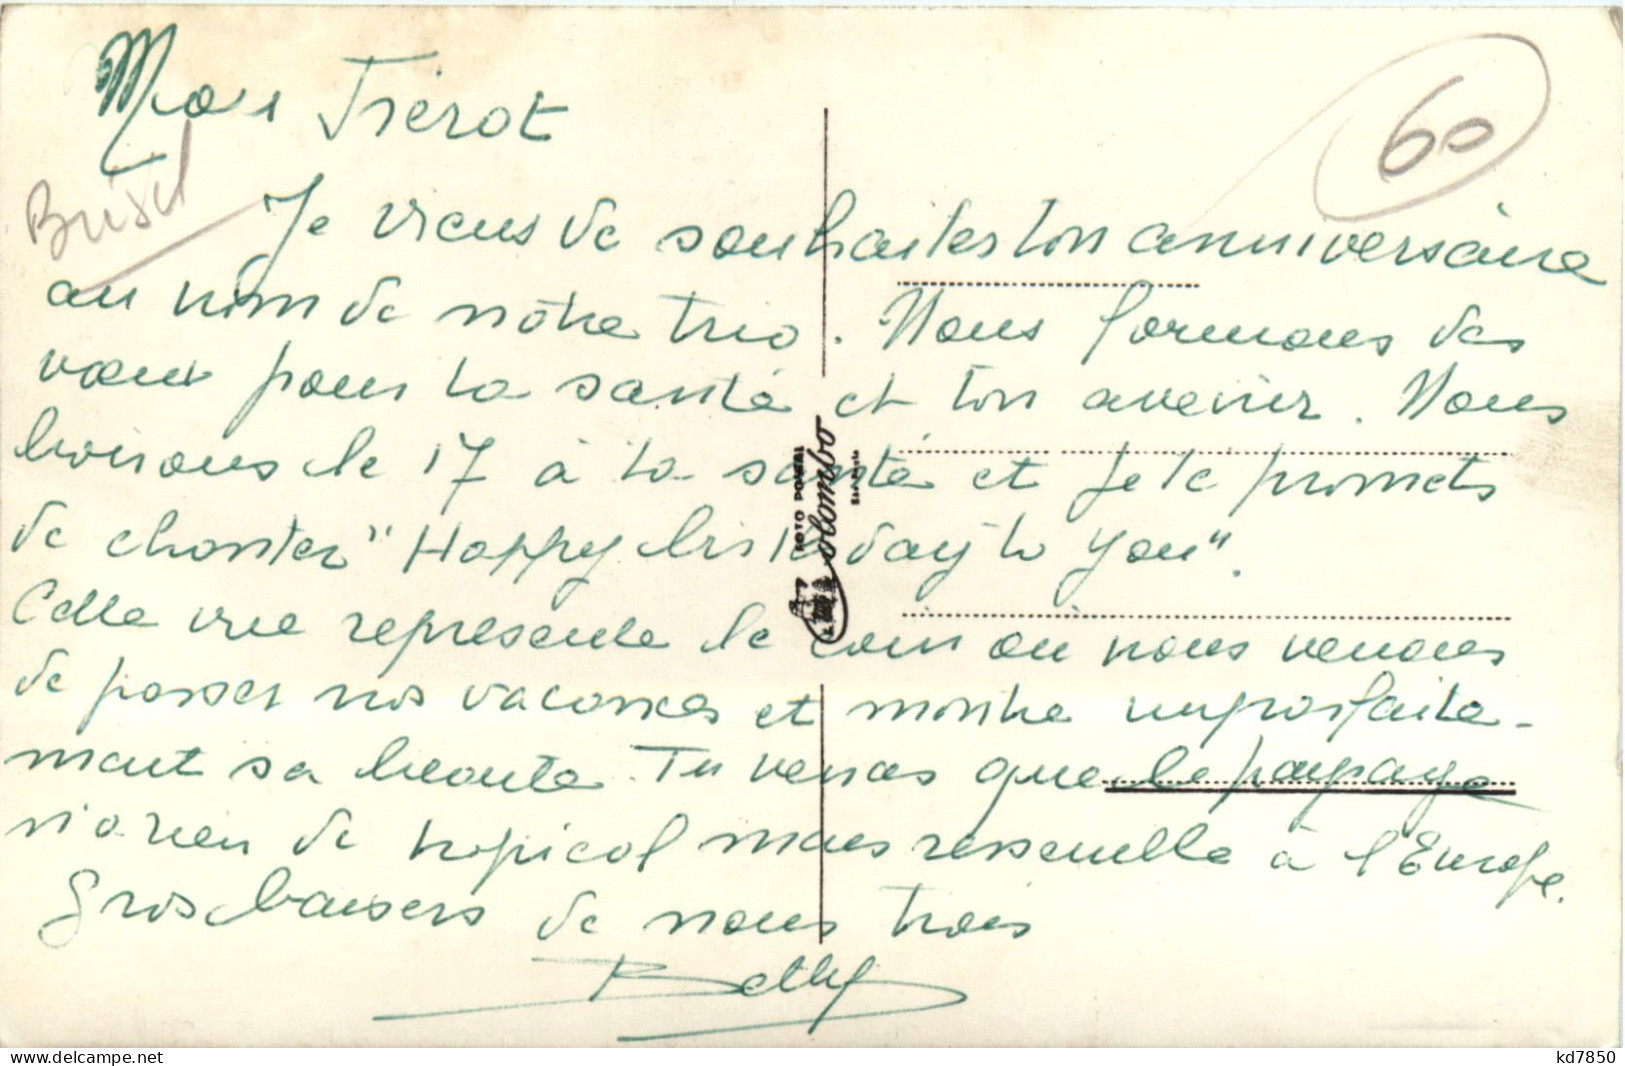 Mon Pierot
60
Brésil
Je viens de souhaiter ton anniversaire
au nom de nôtre trio. Nous formons des
vœux pour ta santé et ton avenir. Nous
boirons le 17 à ta santé et je te promets
de chanter "Happy birthday to you".
Cette vue represente le coin ou nous venons
de passer nos vacances et montre imparfaite-
ment sa beauté. Tu verras que le paysage
n'a rien de tropical mais ressemble à l'Europe.
Gros baisers de nous trois
Betty
FOTO POSTAL
Colombo
São Paulo
www.delcampe.net
kd7850